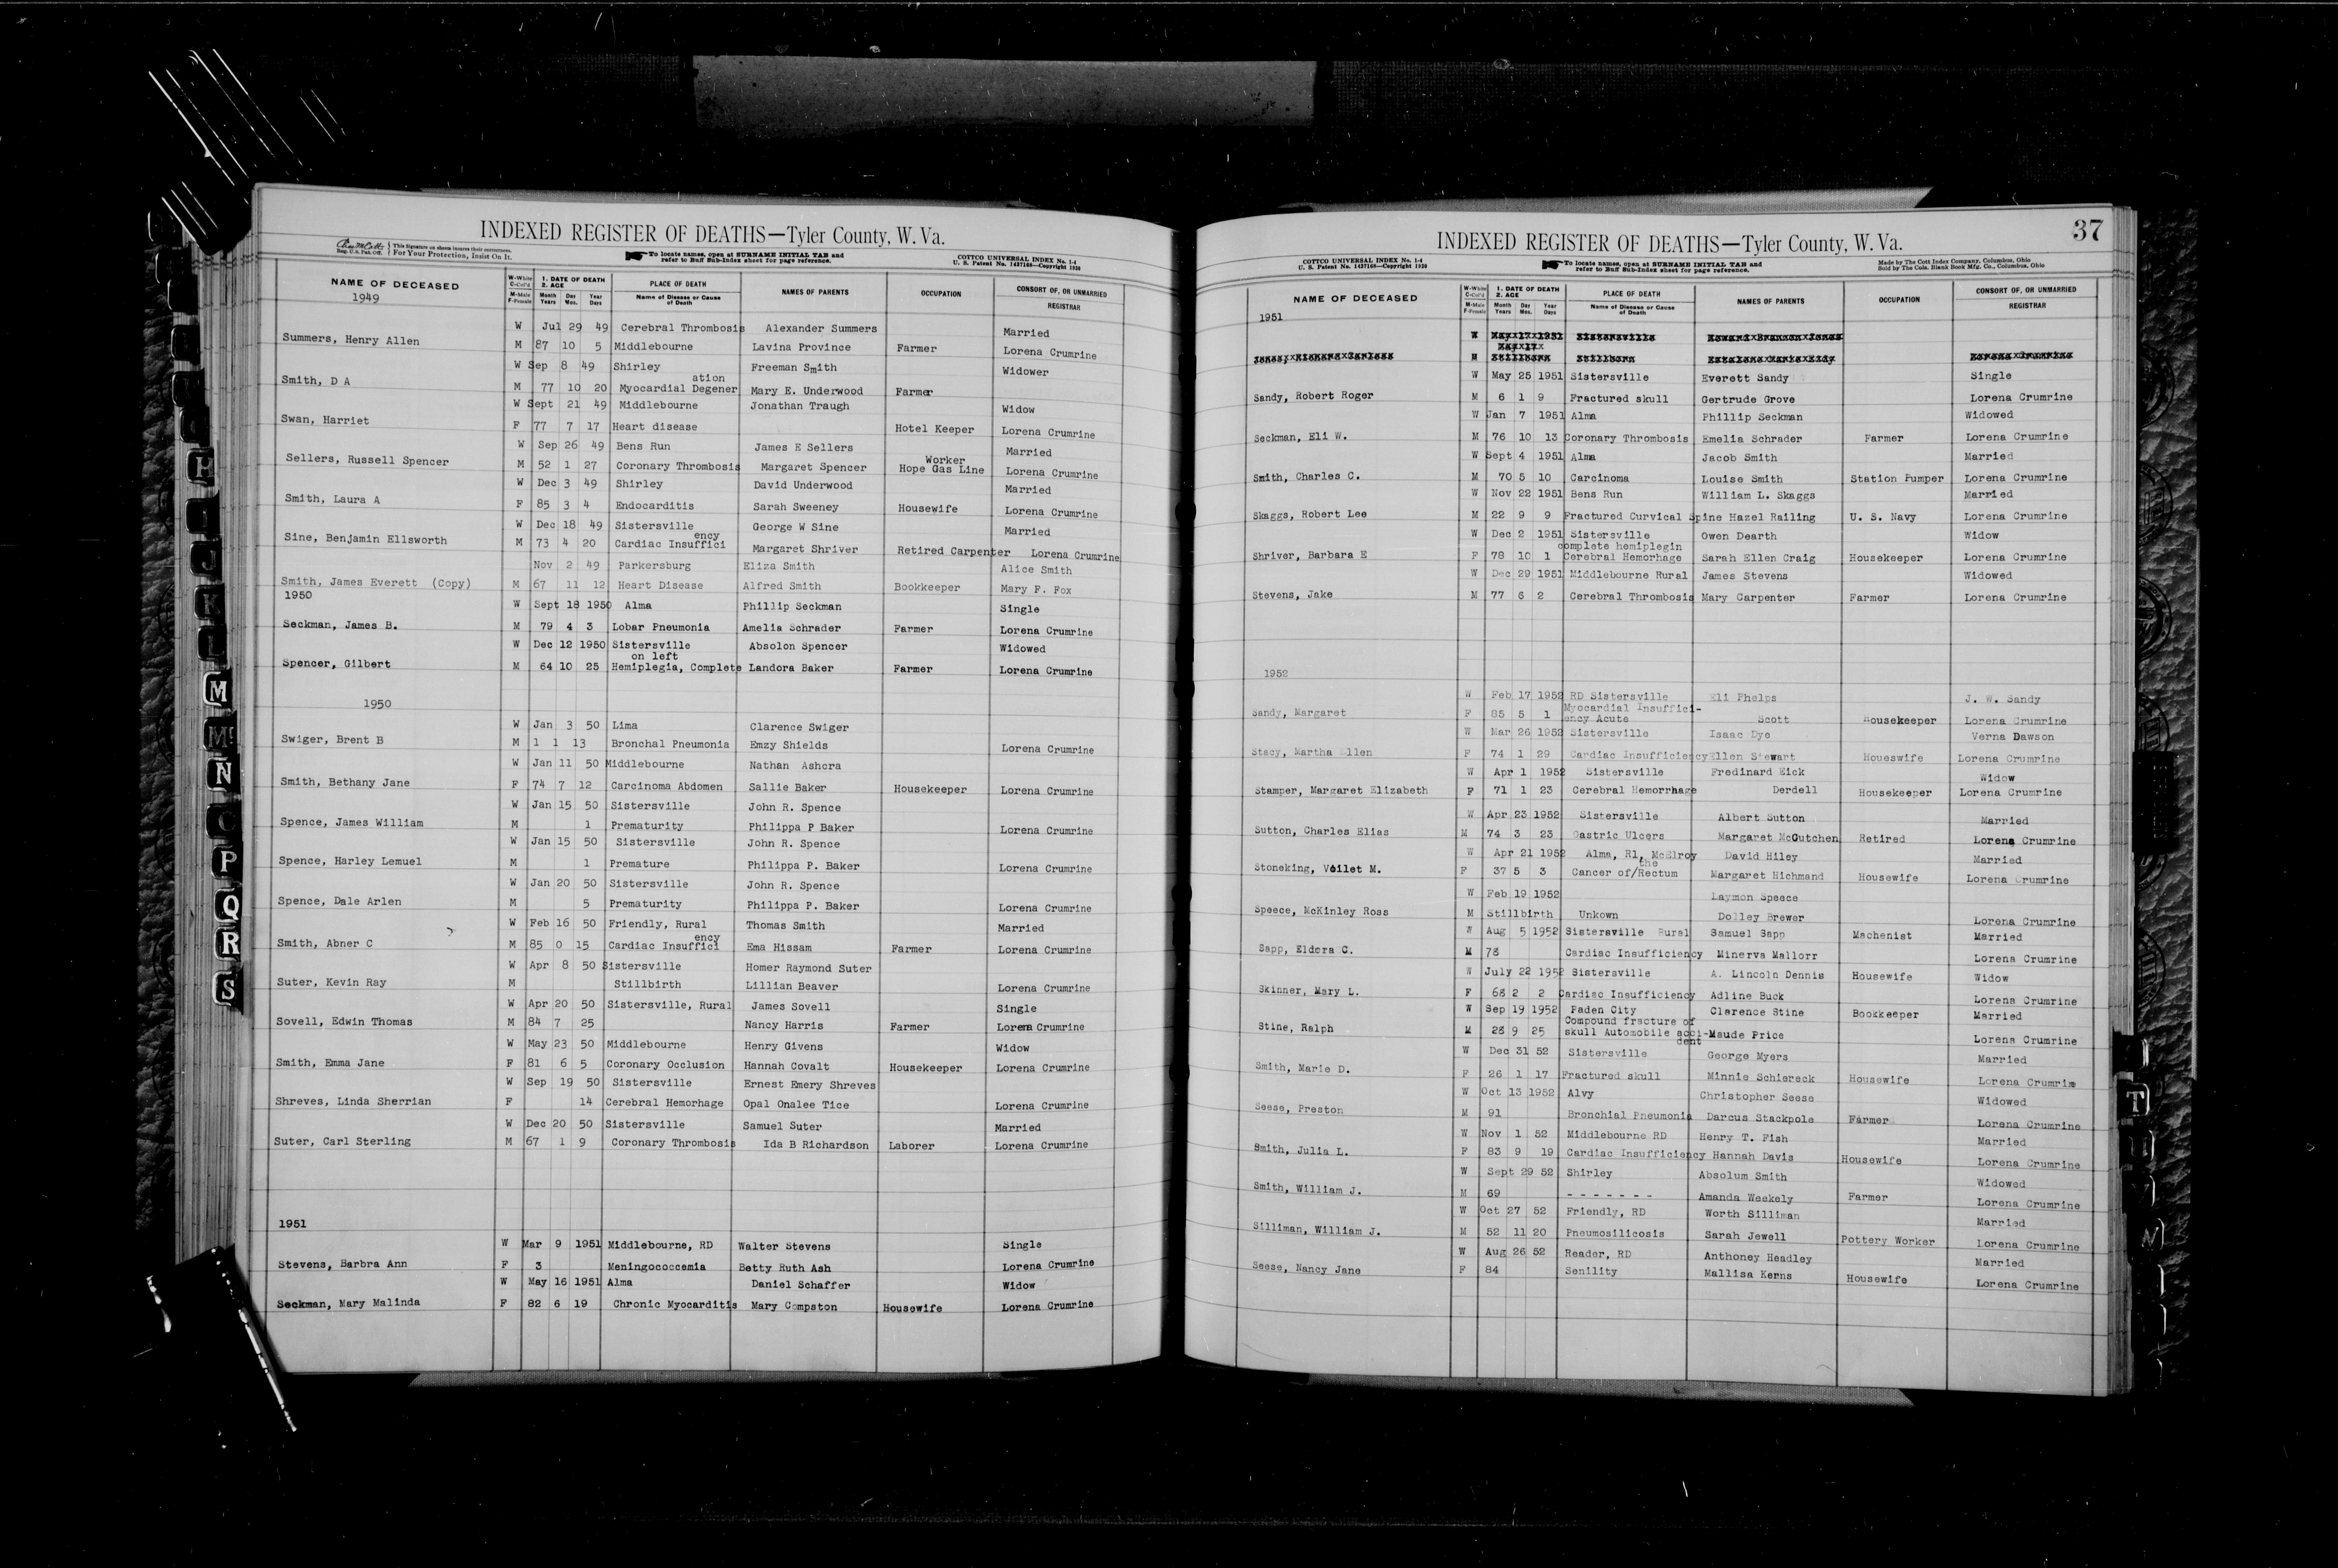 INDEXED REGISTER OF DEATHS—Tyler County, W. Va.
Reg. U.S. Pat. Off. This Signature on sheets insures their correctness. For Your Protection, Insist On It.
To locate names, open at SURNAME INITIAL TAB and refer to Buff Sub-Index sheet for page reference.
COTTCO UNIVERSAL INDEX No. 1-4
U. S. Patent No. 1437168—Copyright 1936
NAME OF DECEASED W-White C-Col'd M-Male F-Female 1. DATE OF DEATH 2. AGE Month Day Year Years Mos. Days PLACE OF DEATH Name of Disease or Cause of Death NAMES OF PARENTS OCCUPATION CONSORT OF, OR UNMARRIED REGISTRAR
1949
W Jul 29 49 Cerebral Thrombosis Alexander Summers Married
Summers, Henry Allen M 87 10 5 Middlebourne Lavina Province Farmer Lorena Crumrine
W Sep 8 49 Shirley Freeman Smith Widower
ation
Smith, D A M 77 10 20 Myocardial Degener Mary E. Underwood Farmer
W Sept 21 49 Middlebourne Jonathan Traugh Widow
Swan, Harriet F 77 7 17 Heart disease Hotel Keeper Lorena Crumrine
W Sep 26 49 Bens Run James E Sellers Married
Worker
Sellers, Russell Spencer M 52 1 27 Coronary Thrombosis Margaret Spencer Hope Gas Line Lorena Crumrine
W Dec 3 49 Shirley David Underwood Married
Smith, Laura A F 85 3 4 Endocarditis Sarah Sweeney Housewife Lorena Crumrine
W Dec 18 49 Sistersville George W Sine Married
ency
Sine, Benjamin Ellsworth M 73 4 20 Cardiac Insuffici Margaret Shriver Retired Carpenter Lorena Crumrine
Nov 2 49 Parkersburg Eliza Smith Alice Smith
Smith, James Everett (Copy) M 67 11 12 Heart Disease Alfred Smith Bookkeeper Mary F. Fox
1950
W Sept 18 1950 Alma Phillip Seckman Single
Seckman, James B. M 79 4 3 Lobar Pneumonia Amelia Schrader Farmer Lorena Crumrine
W Dec 12 1950 Sistersville Absolon Spencer Widowed
on left
Spencer, Gilbert M 64 10 25 Hemiplegia, Complete Landora Baker Farmer Lorena Crumrine
1950
W Jan 3 50 Lima Clarence Swiger
Swiger, Brent B M 1 1 13 Bronchal Pneumonia Emzy Shields Lorena Crumrine
W Jan 11 50 Middlebourne Nathan Ashcra
Smith, Bethany Jane F 74 7 12 Carcinoma Abdomen Sallie Baker Housekeeper Lorena Crumrine
W Jan 15 50 Sistersville John R. Spence
Spence, James William M 1 Prematurity Philippa P Baker Lorena Crumrine
W Jan 15 50 Sistersville John R. Spence
Spence, Harley Lemuel M 1 Premature Philippa P. Baker Lorena Crumrine
W Jan 20 50 Sistersville John R. Spence
Spence, Dale Arlen M 5 Prematurity Philippa P. Baker Lorena Crumrine
W Feb 16 50 Friendly, Rural Thomas Smith Married
ency
Smith, Abner C M 85 0 15 Cardiac Insuffici Ema Hissam Farmer Lorena Crumrine
W Apr 8 50 Sistersville Homer Raymond Suter
Suter, Kevin Ray M Stillbirth Lillian Beaver Lorena Crumrine
W Apr 20 50 Sistersville, Rural James Sovell Single
Sovell, Edwin Thomas M 84 7 25 Nancy Harris Farmer Lorena Crumrine
W May 23 50 Middlebourne Henry Givens Widow
Smith, Emma Jane F 81 6 5 Coronary Occlusion Hannah Covalt Housekeeper Lorena Crumrine
W Sep 19 50 Sistersville Ernest Emery Shreves
Shreves, Linda Sherrian F 14 Cerebral Hemorhage Opal Onalee Tice Lorena Crumrine
W Dec 20 50 Sistersville Samuel Suter Married
Suter, Carl Sterling M 67 1 9 Coronary Thrombosis Ida B Richardson Laborer Lorena Crumrine
1951
W Mar 9 1951 Middlebourne, RD Walter Stevens Single
Stevens, Barbra Ann F 3 Meningococcemia Betty Ruth Ash Lorena Crumrine
W May 16 1951 Alma Daniel Schaffer Widow
Seckman, Mary Malinda F 82 6 19 Chronic Myocarditis Mary Compston Housewife Lorena Crumrine
H
I
J
K
L
M
Mc
N
O
P
Q
R
S
37
INDEXED REGISTER OF DEATHS—Tyler County, W. Va.
COTTCO UNIVERSAL INDEX No. 1-4
U. S. Patent No. 1437168—Copyright 1936
To locate names, open at SURNAME INITIAL TAB and refer to Buff Sub-Index sheet for page reference.
Made by The Cott Index Company, Columbus, Ohio
Sold by The Cols. Blank Book Mfg. Co., Columbus, Ohio
NAME OF DECEASED W-White C-Col'd M-Male F-Female 1. DATE OF DEATH 2. AGE Month Day Year Years Mos. Days PLACE OF DEATH Name of Disease or Cause of Death NAMES OF PARENTS OCCUPATION CONSORT OF, OR UNMARRIED REGISTRAR
1951
W May 25 1951 Sistersville Everett Sandy Single
Sandy, Robert Roger M 6 1 9 Fractured skull Gertrude Grove Lorena Crumrine
W Jan 7 1951 Alma Phillip Seckman Widowed
Seckman, Eli W. M 76 10 13 Coronary Thrombosis Emelia Schrader Farmer Lorena Crumrine
W Sept 4 1951 Alma Jacob Smith Married
Smith, Charles C. M 70 5 10 Carcinoma Louise Smith Station Pumper Lorena Crumrine
W Nov 22 1951 Bens Run William L. Skaggs Married
Skaggs, Robert Lee M 22 9 9 Fractured Curvical Spine Hazel Railing U. S. Navy Lorena Crumrine
W Dec 2 1951 Sistersville Owen Dearth Widow
complete hemiplegin
Shriver, Barbara E F 78 10 1 Cerebral Hemorhage Sarah Ellen Craig Housekeeper Lorena Crumrine
W Dec 29 1951 Middlebourne Rural James Stevens Widowed
Stevens, Jake M 77 6 2 Cerebral Thrombosis Mary Carpenter Farmer Lorena Crumrine
1952
W Feb 17 1952 RD Sistersville Eli Phelps J. W. Sandy
Myocardial Insuffici-
Sandy, Margaret F 85 5 1 ency Acute Scott Housekeeper Lorena Crumrine
W Mar 26 1952 Sistersville Isaac Dye Verna Dawson
Stacy, Martha Ellen F 74 1 29 Cardiac Insufficiency Ellen Stewart Houeswife Lorena Crumrine
W Apr 1 1952 Sistersville Fredinard Eick Widow
Stamper, Margaret Elizabeth F 71 1 23 Cerebral Hemorrhage Derdell Housekeeper Lorena Crumrine
W Apr 23 1952 Sistersville Albert Sutton Married
Sutton, Charles Elias M 74 3 23 Gastric Ulcers Margaret McCutchen Retired Lorena Crumrine
W Apr 21 1952 Alma, R1, McElroy David Hiley Married
the
Stoneking, Voilet M. F 37 5 3 Cancer of/Rectum Margaret Hichmand Housewife Lorena Crumrine
W Feb 19 1952 Laymon Speece
Speece, McKinley Ross M Stillbirth Unkown Dolley Brewer Lorena Crumrine
W Aug 5 1952 Sistersville Rural Samuel Sapp Machenist Married
Sapp, Eldora C. M Cardiac Insufficiency Minerva Mallorr Lorena Crumrine
W July 22 1952 Sistersville A. Lincoln Dennis Housewife Widow
Skinner, Mary L. F 2 2 Cardiac Insufficiency Adline Buck Lorena Crumrine
W Sep 19 1952 Paden City Clarence Stine Bookkeeper Married
Compound fracture of
Stine, Ralph M 9 25 skull Automobile acci- Maude Price Lorena Crumrine
dent
W Dec 31 52 Sistersville George Myers Married
Smith, Marie D. F 26 1 17 Fractured skull Minnie Schiereck Housewife Lorena Crumrine
W Oct 13 1952 Alvy Christopher Seese Widowed
Seese, Preston M 91 Bronchial Pneumonia Darcus Stackpole Farmer Lorena Crumrine
W Nov 1 52 Middlebourne RD Henry T. Fish Married
Smith, Julia L. F 83 9 19 Cardiac Insufficiency Hannah Davis Housewife Lorena Crumrine
W Sept 29 52 Shirley Absolum Smith Widowed
Smith, William J. M 69 - - - - - - - Amanda Weekely Farmer Lorena Crumrine
W Oct 27 52 Friendly, RD Worth Silliman Married
Silliman, William J. M 52 11 20 Pneumosilicosis Sarah Jewell Pottery Worker Lorena Crumrine
W Aug 26 52 Reader, RD Anthoney Headley Married
Seese, Nancy Jane F 84 Senility Mallisa Kerns Housewife Lorena Crumrine
T